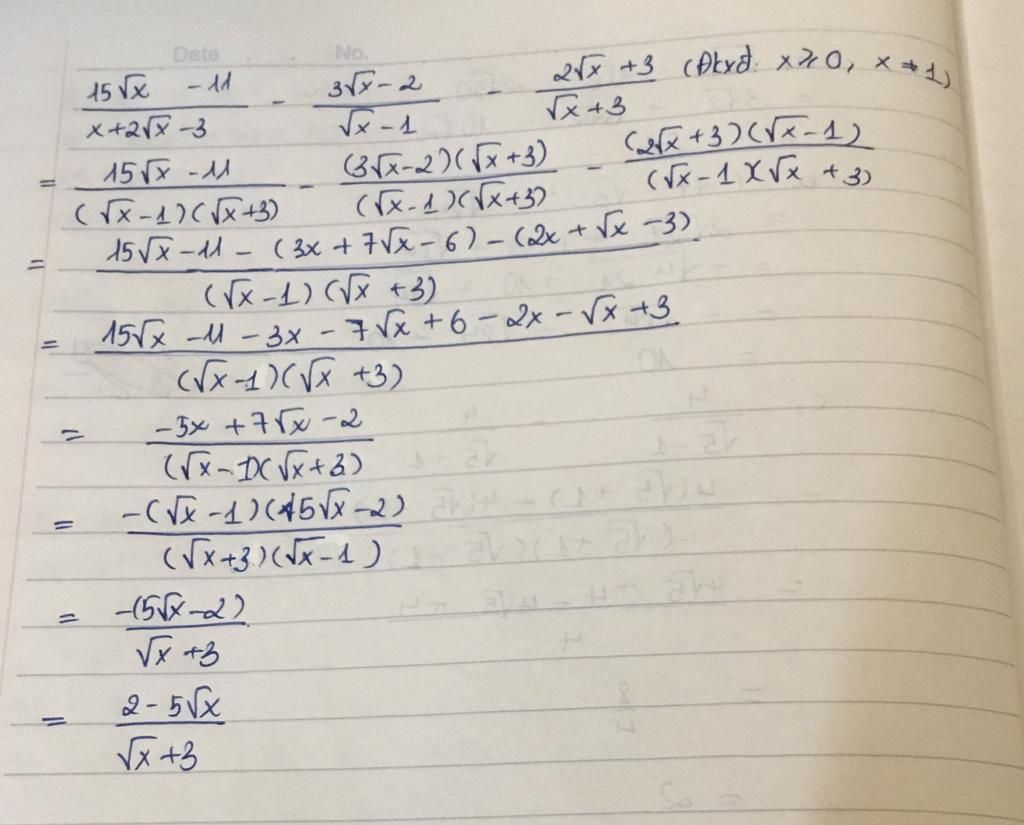 Date No.
(15√x - 11)/(x+2√x-3) - (3√x-2)/(√x-1) - (2√x+3)/(√x+3) (Đkxđ: x≥0, x≠1)
= (15√x - 11)/((√x-1)(√x+3)) - ((3√x-2)(√x+3))/((√x-1)(√x+3)) - ((2√x+3)(√x-1))/((√x-1)(√x+3))
= (15√x - 11 - (3x + 7√x - 6) - (2x + √x - 3))/((√x-1)(√x+3))
= (15√x - 11 - 3x - 7√x + 6 - 2x - √x + 3)/((√x-1)(√x+3))
= (-5x + 7√x - 2)/((√x-1)(√x+3))
= (-(√x-1)(5√x-2))/((√x+3)(√x-1))
= (-(5√x-2))/(√x+3)
= (2-5√x)/(√x+3)